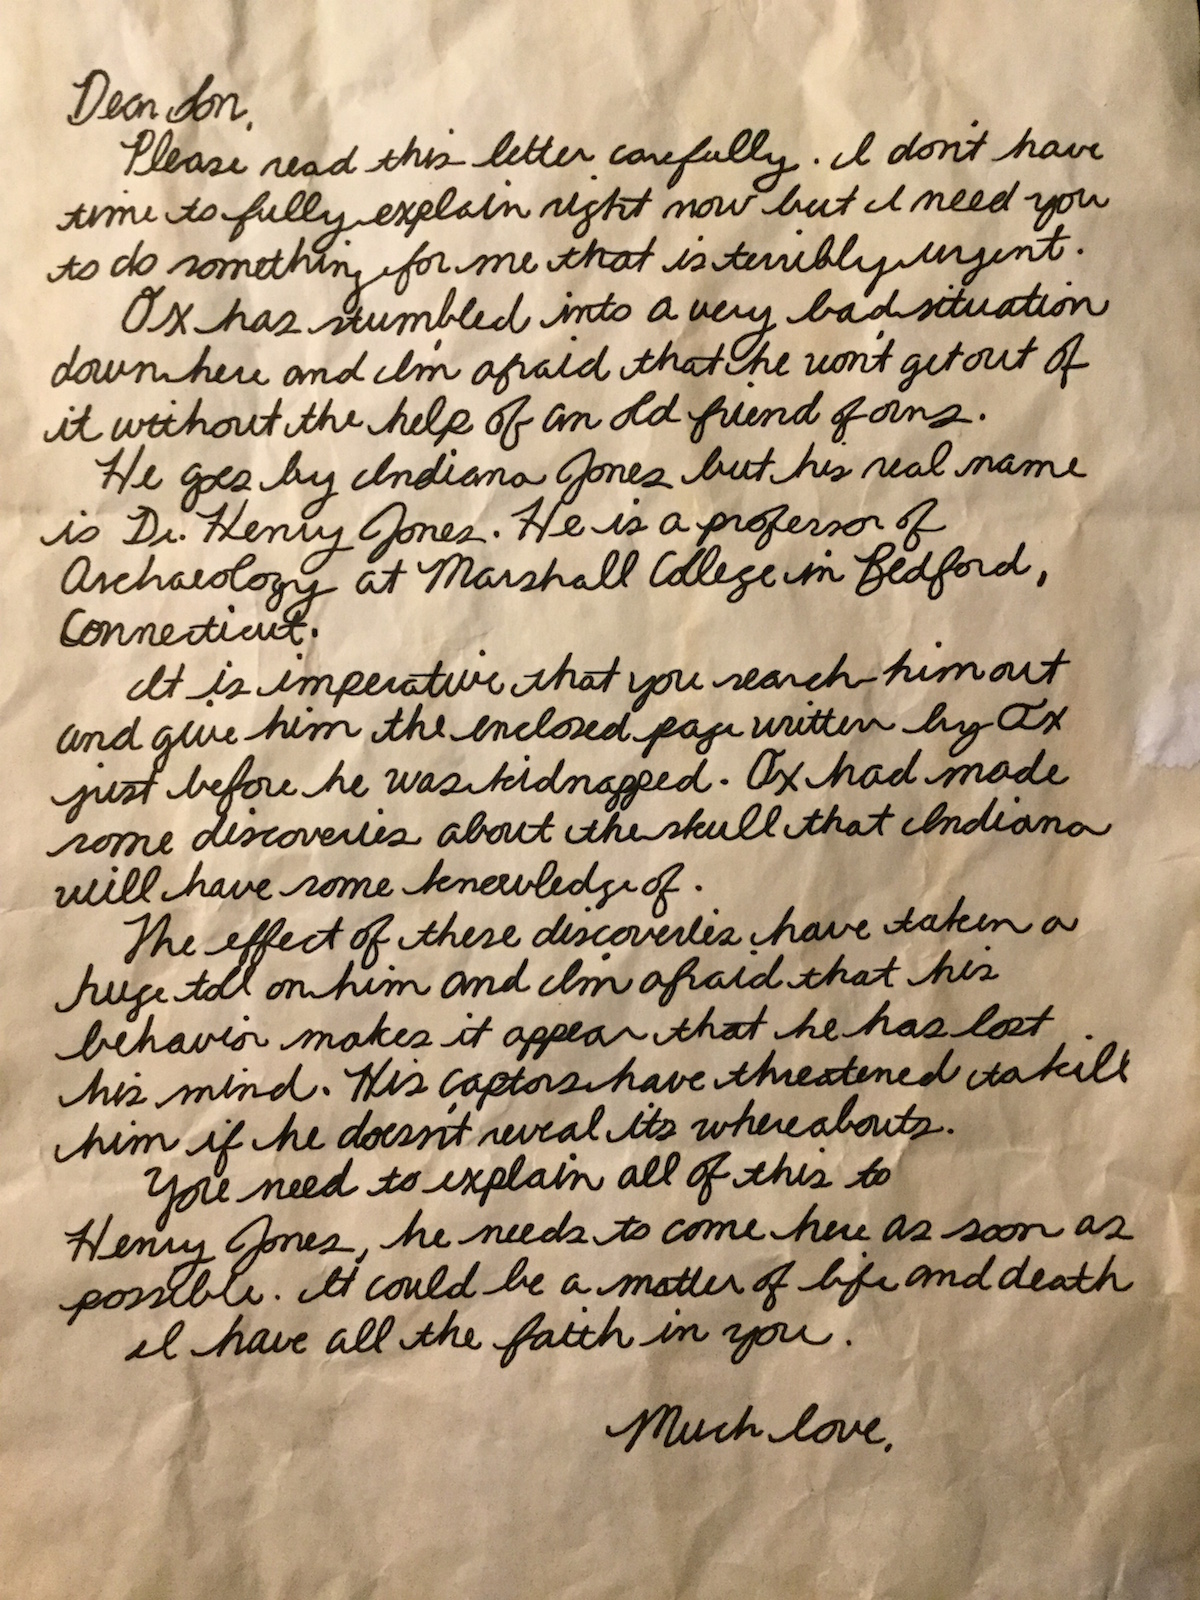 Dear Son,
Please read this letter carefully. I don't have
time to fully explain right now but I need you
to do something for me that is terribly urgent.
Ox has stumbled into a very bad situation
down here and I'm afraid that he won't get out of
it without the help of an old friend of ours.
He goes by Indiana Jones but his real name
is Dr. Henry Jones. He is a professor of
Archaeology at Marshall College in Bedford,
Connecticut.
It is imperative that you search him out
and give him the enclosed page written by Ox
just before he was kidnapped. Ox had made
some discoveries about the skull that Indiana
will have some knowledge of.
The effect of these discoveries have taken a
huge toll on him and I'm afraid that his
behavior makes it appear that he has lost
his mind. His captors have threatened to kill
him if he doesn't reveal its whereabouts.
You need to explain all of this to
Henry Jones, he needs to come here as soon as
possible. It could be a matter of life and death
I have all the faith in you.
Much love,